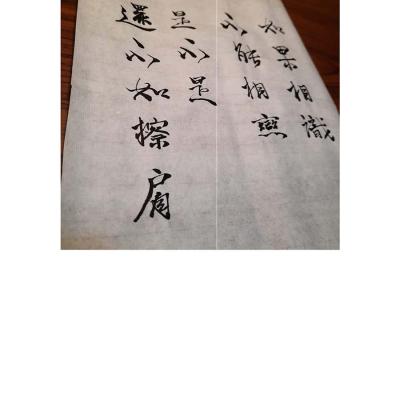 如果相識
不能相戀
是不是
還不如擦肩